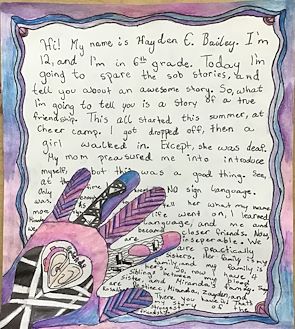 Hi! My name is Hayden E. Bailey. I'm
12, and I'm in 6th grade. Today I'm
going to spare the sob stories, and
tell you about an awesome story. So, what
I'm going to tell you is a story of a true
friendship. This all started this summer, at
cheer camp. I got dropped off, then a
girl walked in. Except, she was deaf.
My mom preasured me into introduce
myself, but this was a good thing. See,
at the time NO sign language.
Only
was tell her what my name
life went on, I learned
language, and me and
became closer friends. Now
are inseperable. We
are practically
sisters. Her family is my
family and my family is
hers. So, now my
siblings between my blood
sister and Miranda's family. They
are Miranda, Zayden, and
There, you have it! That's
story of the